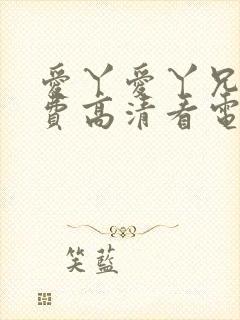 愛丫愛丫兄
費高清看電
笑藍